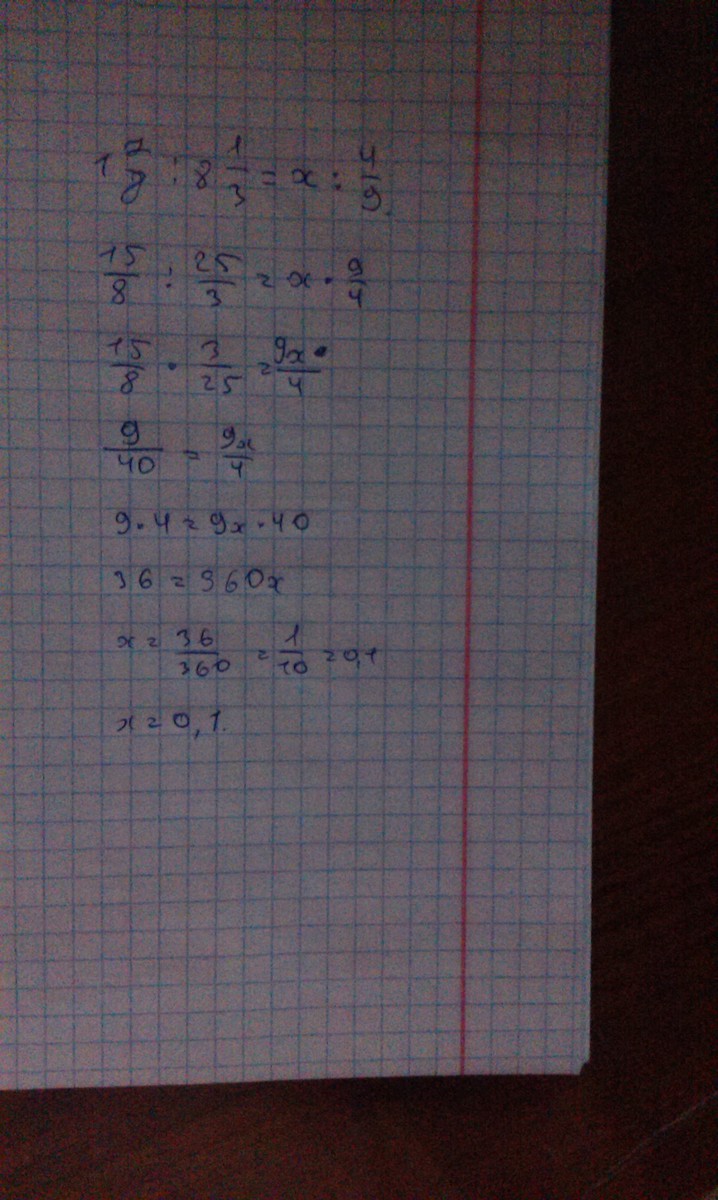 1 7/8 : 8 1/3 = x : 4/9
15/8 : 25/3 = x · 9/4
15/8 · 3/25 = 9x/4
9/40 = 9x/4
9 · 4 = 9x · 40
36 = 360x
x = 36/360 = 1/10 = 0,1
x = 0,1.